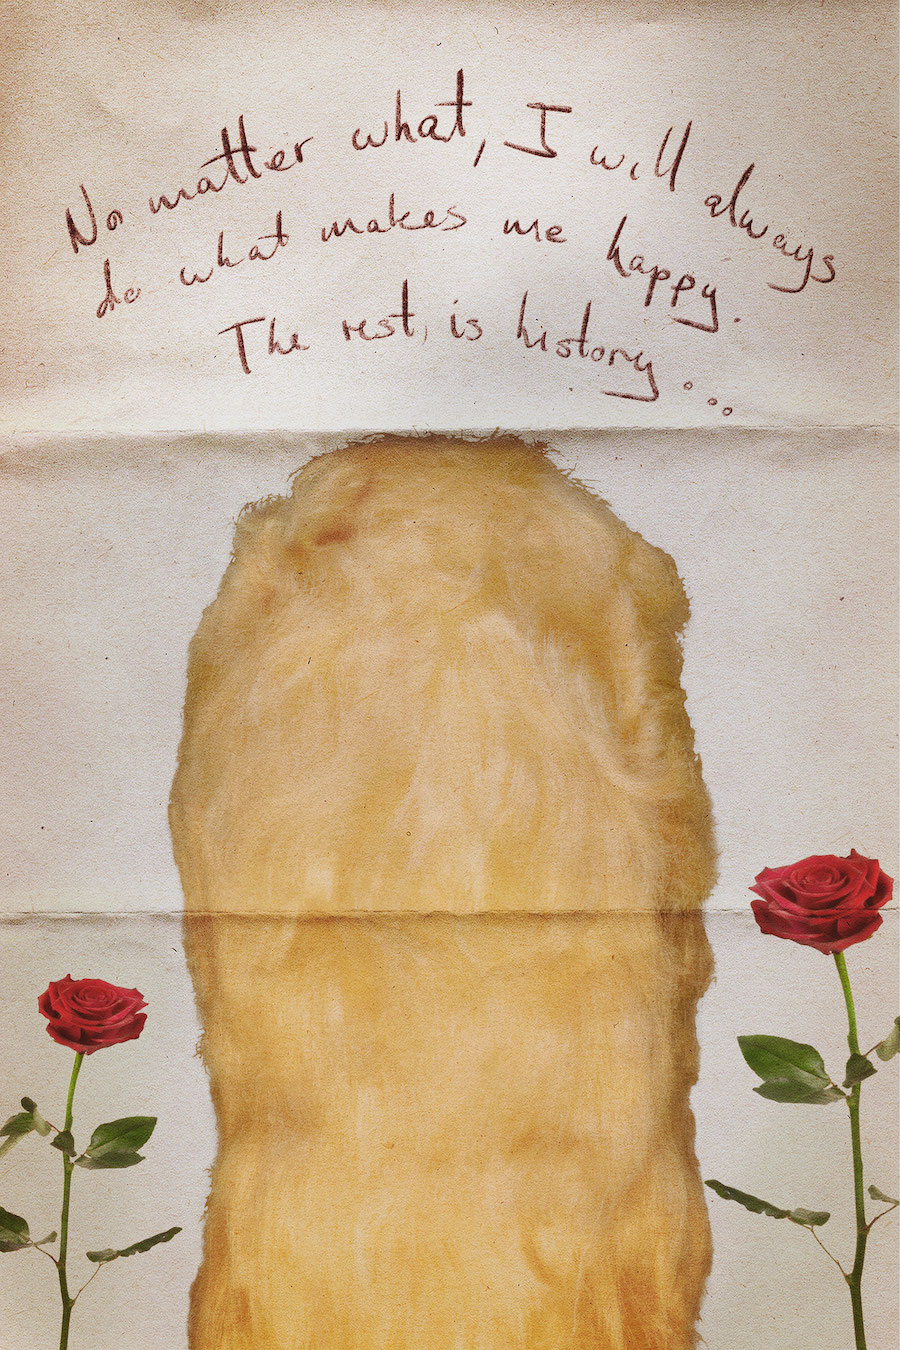 No matter what, I will always
do what makes me happy.
The rest, is history...